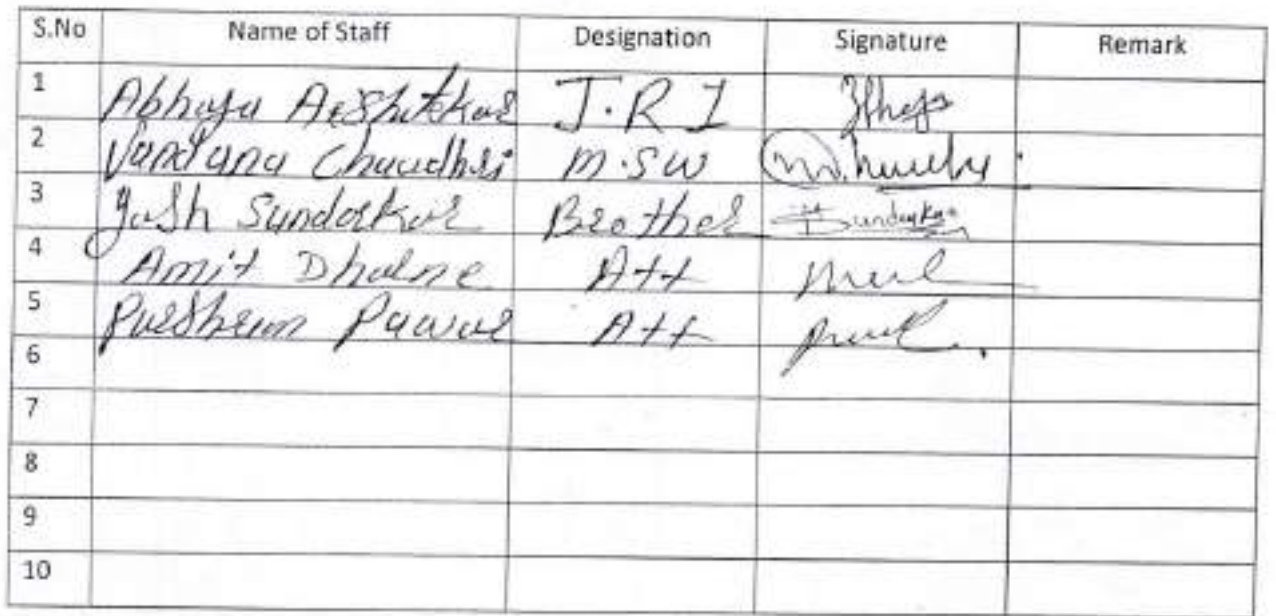 S.No Name of Staff Designation Signature Remark
1 Abhaya J.R I
2 Vandana Chaudhri M.SW
3 Yash Sundarkar Brother Sundarkar
4 Amit Dhalne Att
5 Purshram Pawar Att
6
7
8
9
10